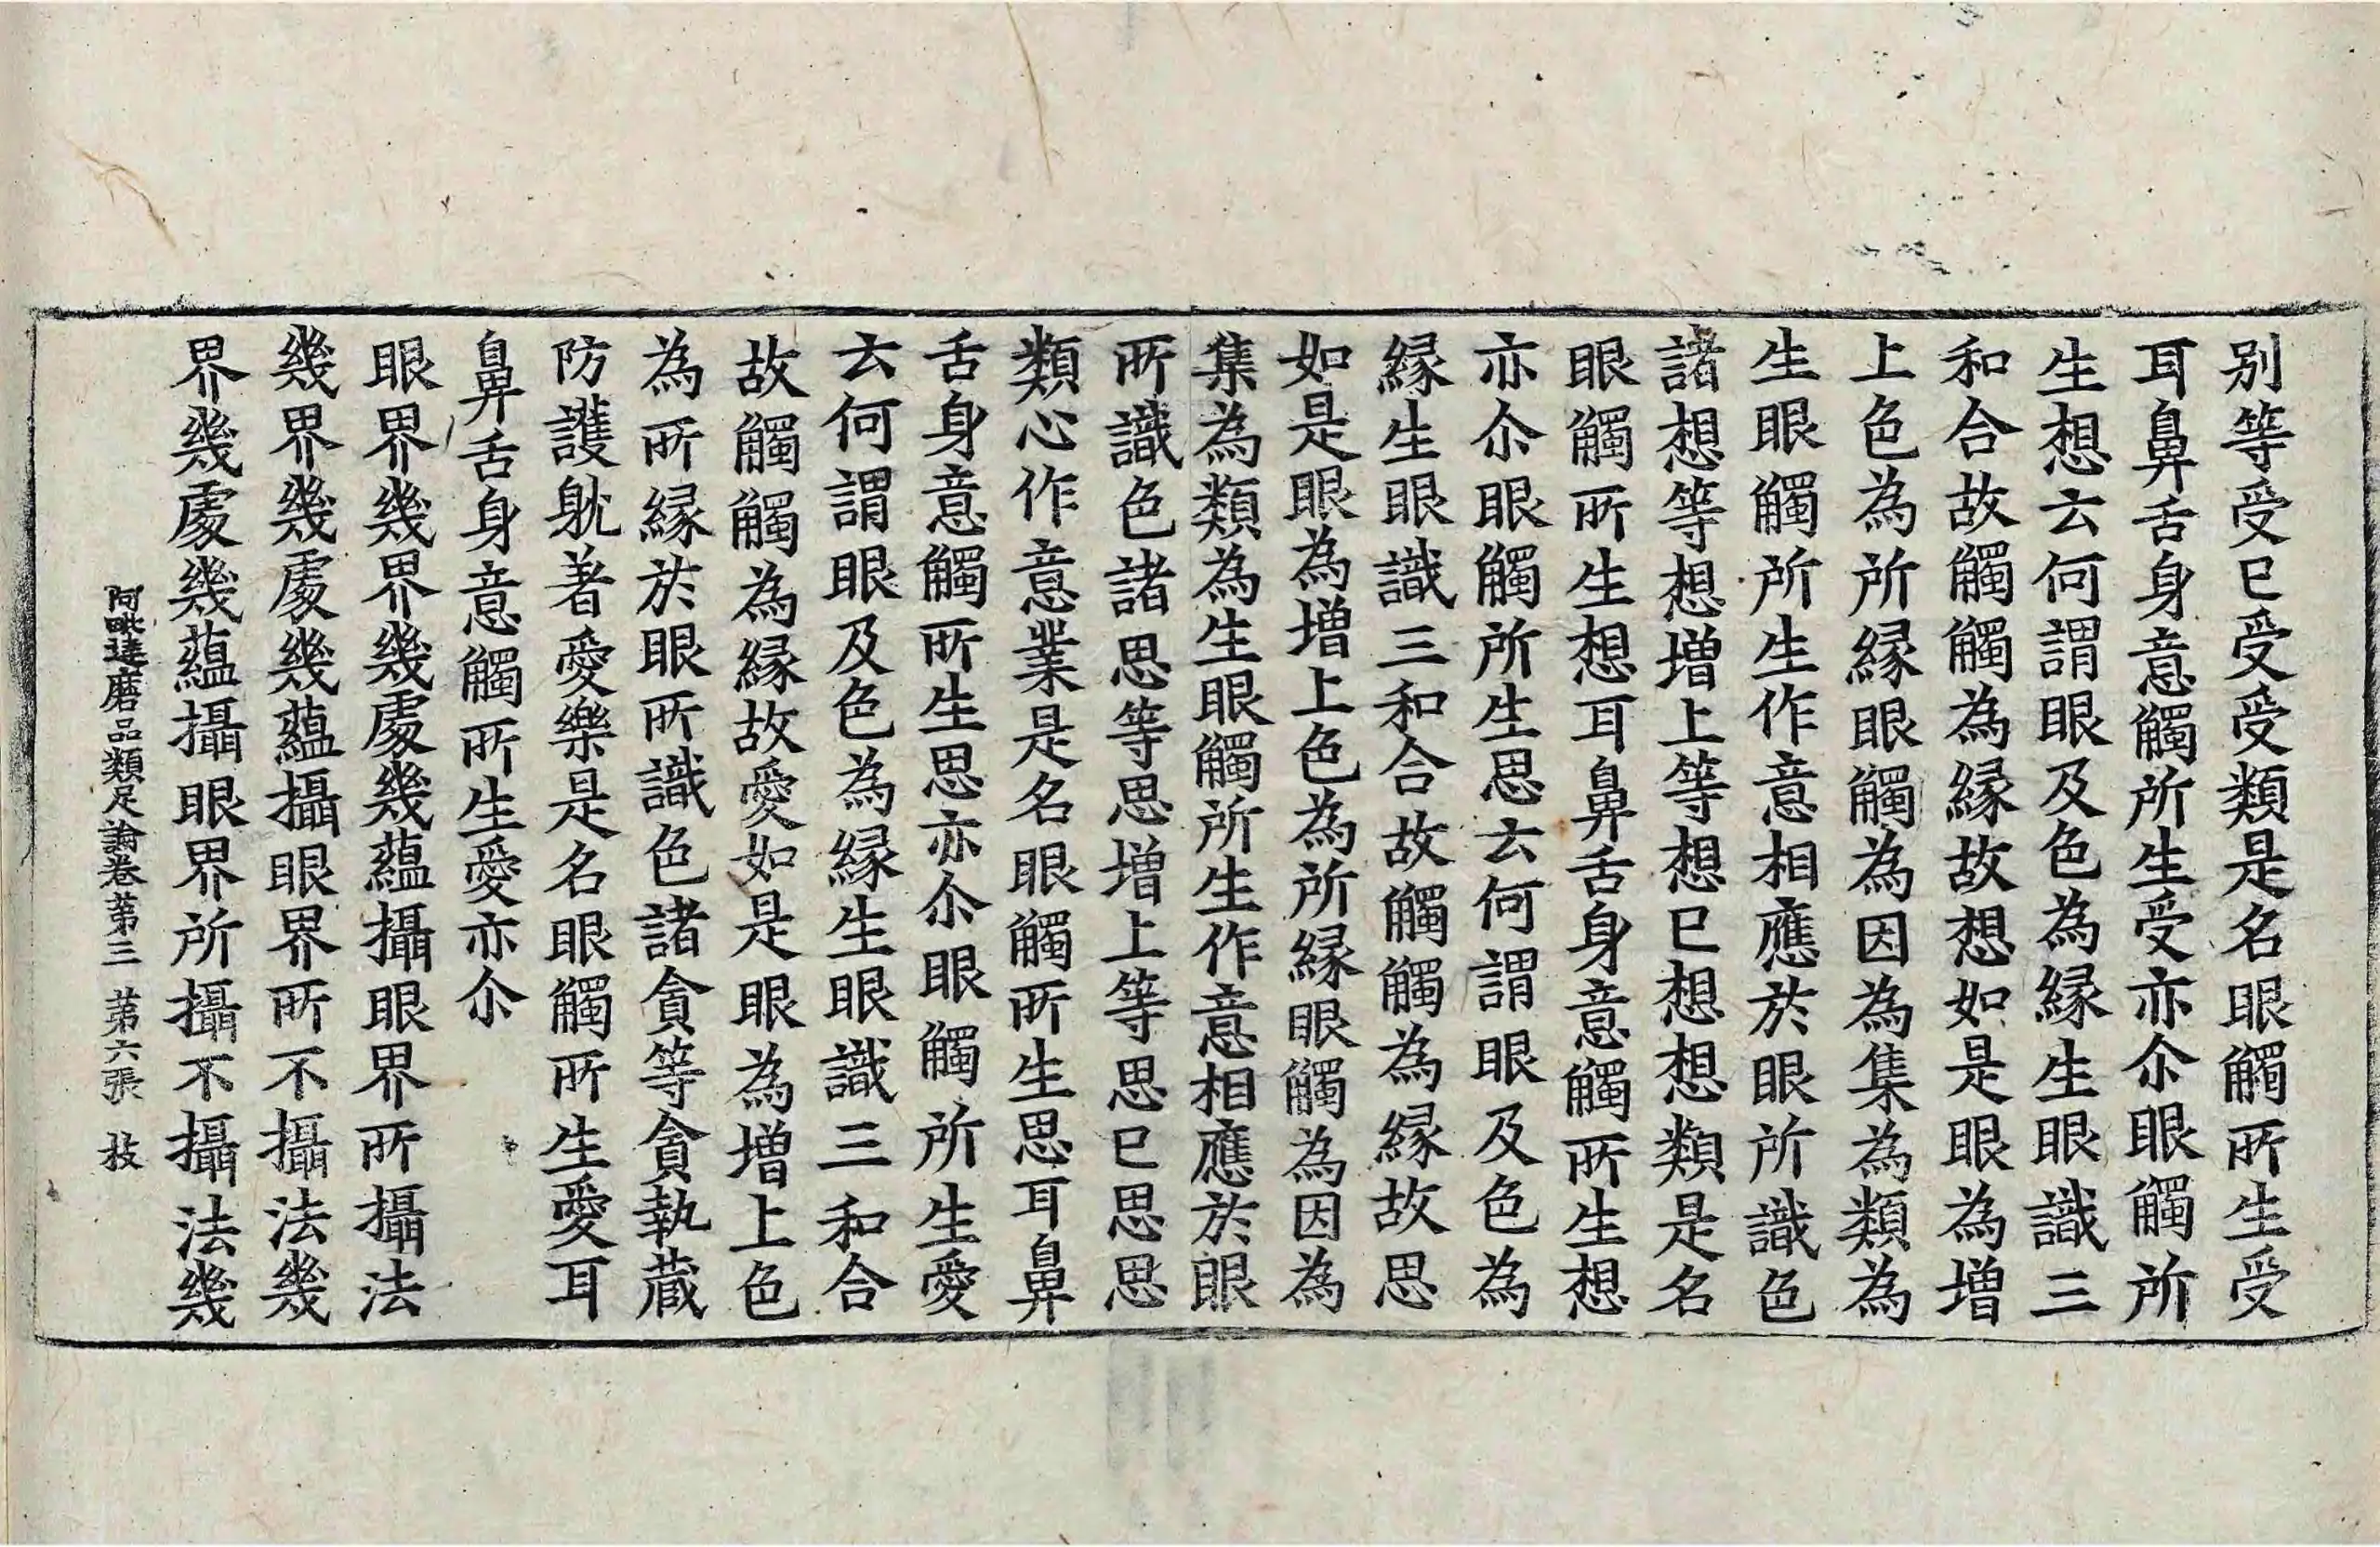 别等受已受受類是名眼觸所生受
耳鼻舌身意觸所生受亦尒眼觸所
生想云何謂眼及色為縁生眼識三
和合故觸觸為縁故想如是眼為增
上色為所縁眼觸為因為集為類為
生眼觸所生作意相應於眼所識色
諸想等想增上等想已想想類是名
眼觸所生想耳鼻舌身意觸所生想
亦尒眼觸所生思云何謂眼及色為
縁生眼識三和合故觸觸為縁故思
如是眼為增上色為所縁眼觸為因為
集為類為生眼觸所生作意相應於眼
所識色諸思等思增上等思已思思
類心作意業是名眼觸所生思耳鼻
舌身意觸所生思亦尒眼觸所生愛
云何謂眼及色為縁生眼識三和合
故觸觸為縁故愛如是眼為增上色
為所縁於眼所識色諸貪等貪執蔵
防護躭著愛樂是名眼觸所生愛耳
鼻舌身意觸所生愛亦尒
眼界幾界幾處幾蘊攝眼界所攝法
幾界幾處幾蘊攝眼界所不攝法幾
界幾處幾蘊攝眼界所攝不攝法幾
阿毗達磨品類足論卷苐三 苐六張 技